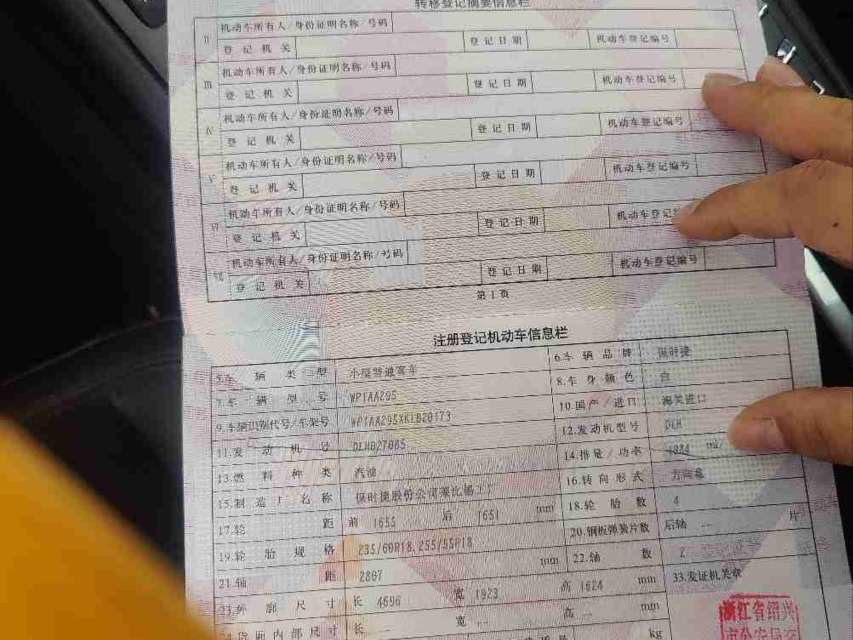 转移登记摘要信息栏
II 机动车所有人/身份证明名称/号码
登记机关 登记日期 机动车登记编号
III 机动车所有人/身份证明名称/号码
登记机关 登记日期 机动车登记编号
IV 机动车所有人/身份证明名称/号码
登记机关 登记日期 机动车登记编号
V 机动车所有人/身份证明名称/号码
登记机关 登记日期 机动车登记编号
VI 机动车所有人/身份证明名称/号码
登记机关 登记日期 机动车登记
VII 机动车所有人/身份证明名称/号码
登记机关 登记日期 机动车登记编号
第1页
注册登记机动车信息栏
5.车辆类型 小型普通客车 6.车辆品牌 保时捷
7.车辆型号 WP1AA295 8.车身颜色 白
9.车辆识别代号/车架号 10.国产/进口 海关进口
11.发动机号 12.发动机型号 DLH
13.燃料种类 汽油 14.排量/功率 1984 ml/
15.制造厂名称 保时捷股份公司莱比锡工厂 16.转向形式 方向盘
17.轮距 前 1655 后 1651 mm 18.轮胎数 4
19.轮胎规格 235/60R18,255/55R18 20.钢板弹簧片数 后轴 -- 片
21.轴距 2807 mm 22.轴数 2
23.外廓尺寸 长 4696 宽 1923 高 1624 mm 33.发证机关章
货厢内部尺寸 长 宽 高 mm
浙江省绍兴
kg